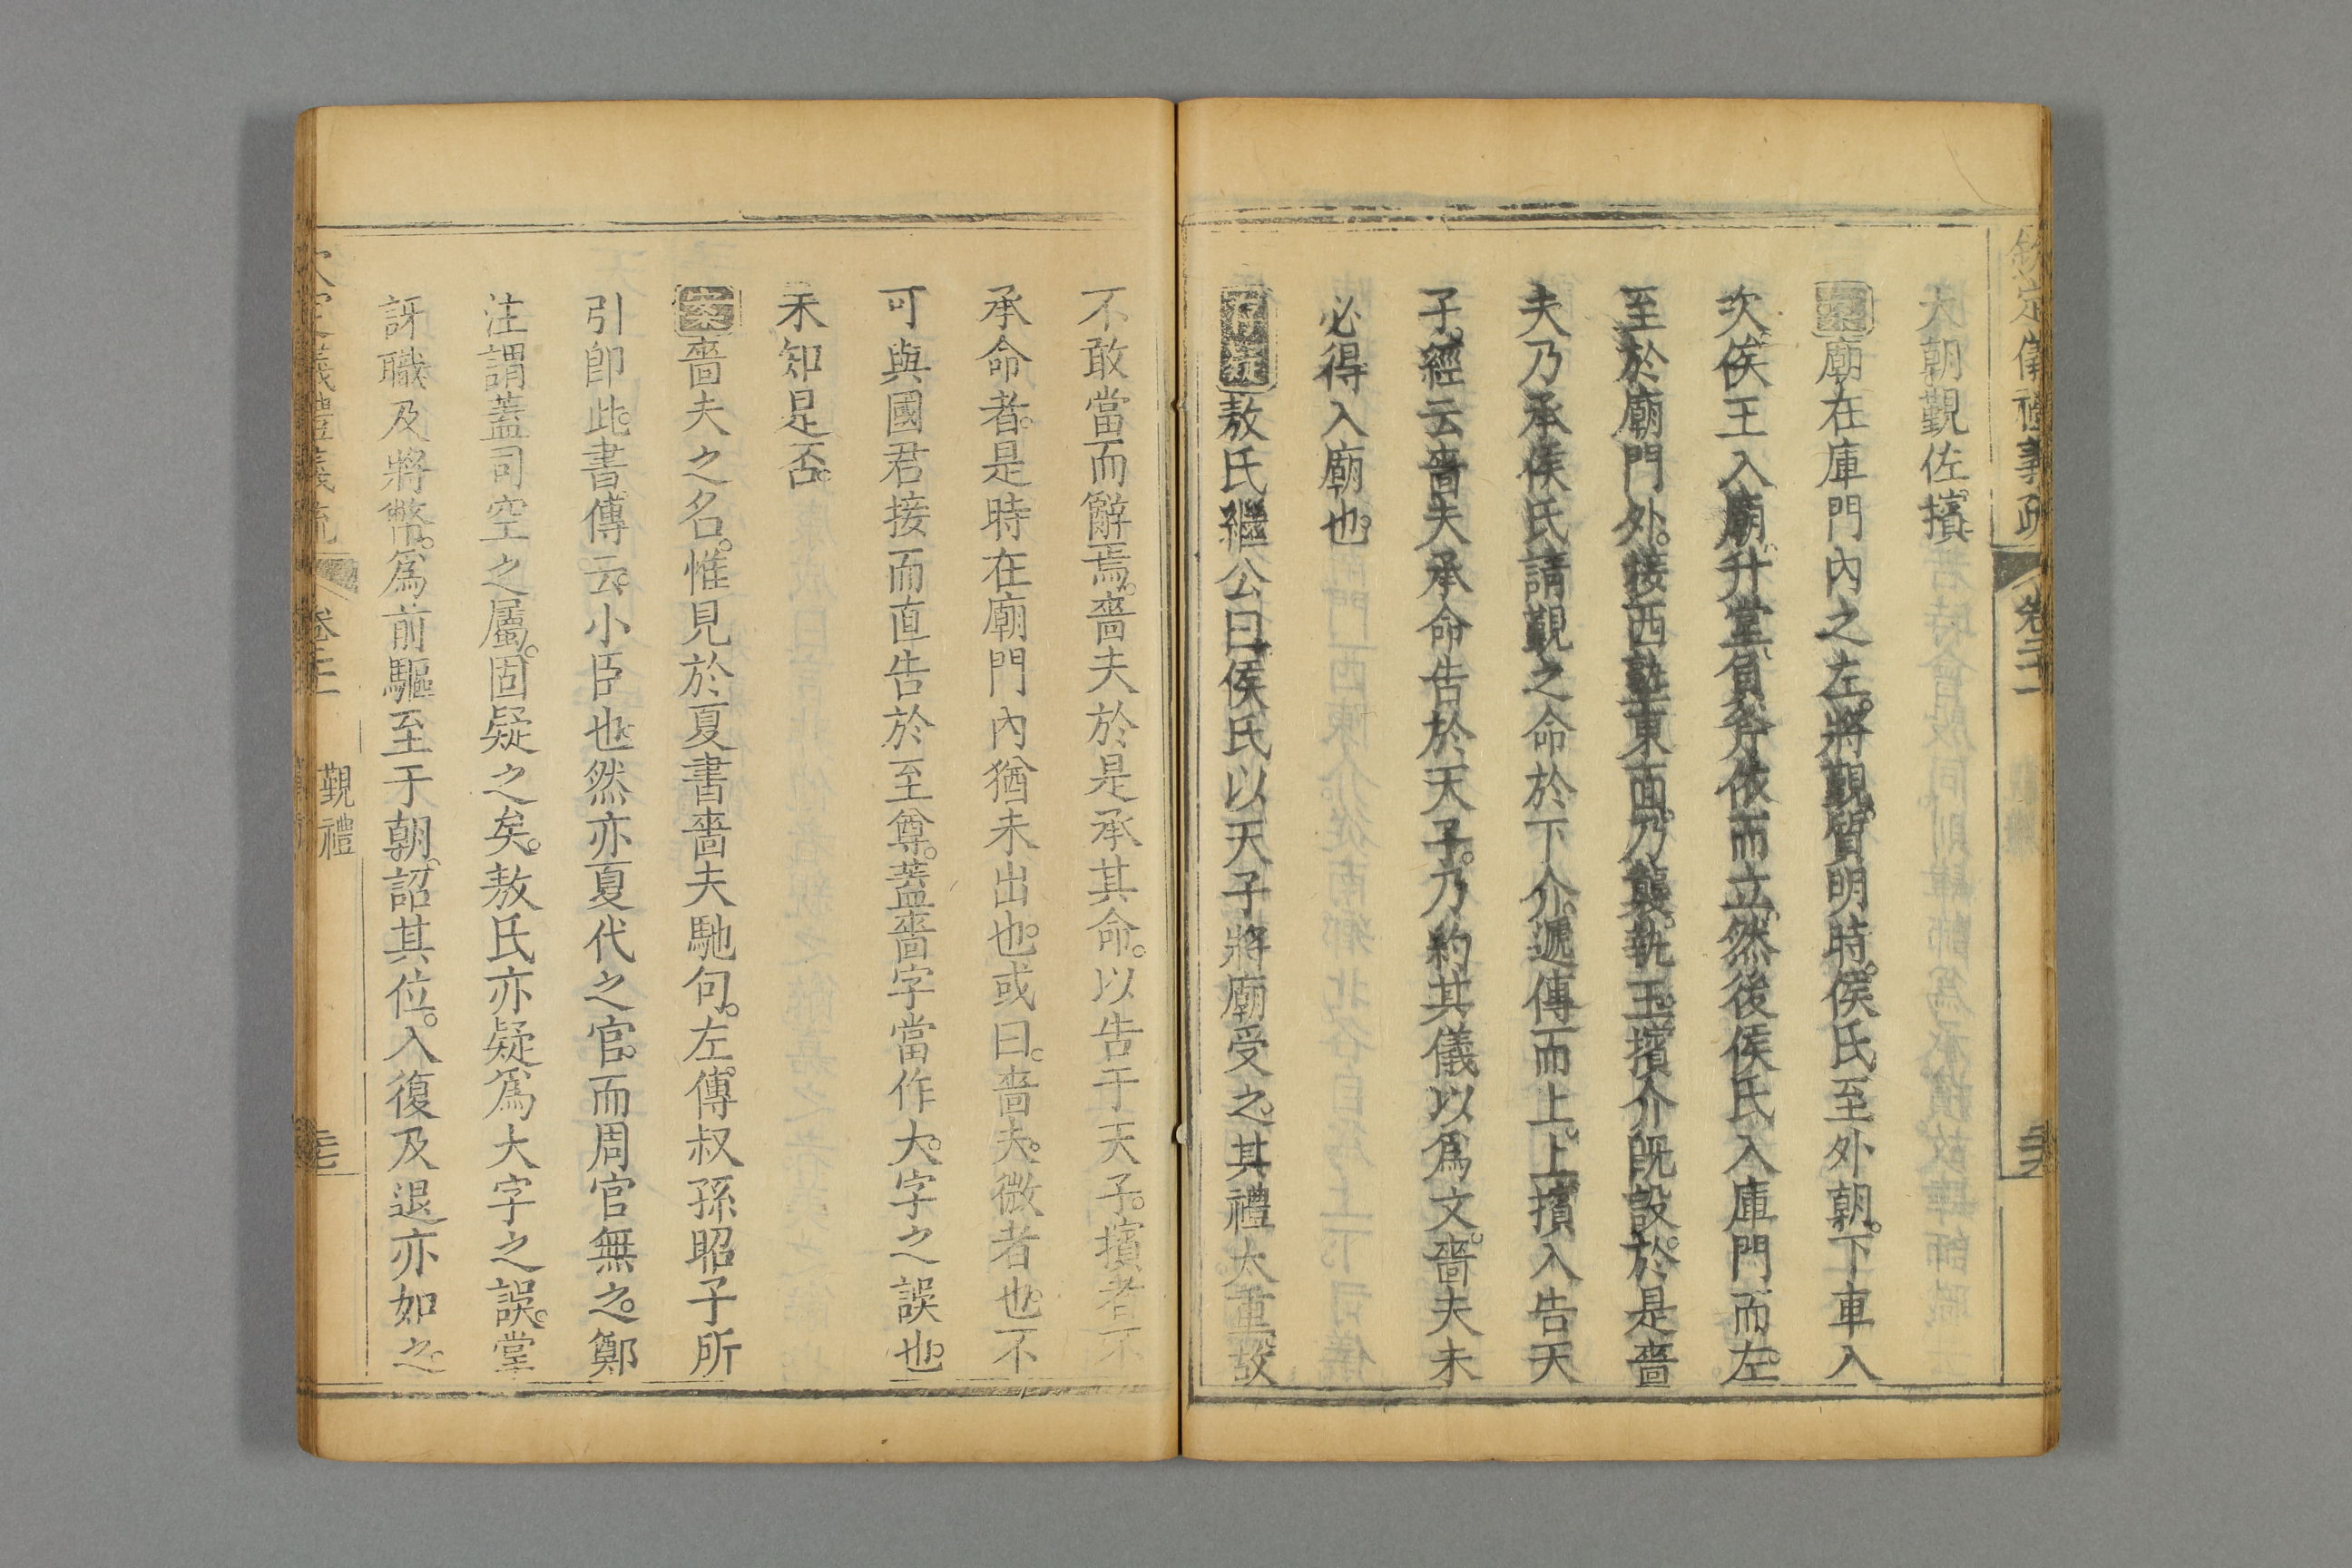 欽定儀禮義疏 卷二十一
大朝覲佐擯
案廟在庫門內之左。將覲。質明時。侯氏至外朝。下車入
次。俟王入廟。升堂。負斧依而立。然後侯氏入庫門而左。
至於廟門外。接西塾東面。乃襲執玉。擯介旣設。於是嗇
夫乃承侯氏請覲之命於下介。遞傳而上。上擯入告天
子。經云嗇夫承命告於天子。乃約其儀以爲文。嗇夫未
必得入廟也。
敖氏繼公曰。侯氏以天子將廟受之。其禮大重。故
不敢當而辭焉。嗇夫於是承其命。以告于天子。擯者不
承命者。是時在廟門內猶未出也。或曰。嗇夫。微者也。不
可與國君接而直告於至尊。蓋嗇字當作大。字之誤也。
未知是否。
案嗇夫之名。惟見於夏書嗇夫馳句。左傳叔孫昭子所
引卽此。書傳云。小臣也。然亦夏代之官。而周官無之。鄭
注謂蓋司空之屬。固疑之矣。敖氏亦疑爲大字之誤。掌
訝職及將幣。爲前驅至于朝。詔其位。入復及退亦如之。
覲禮